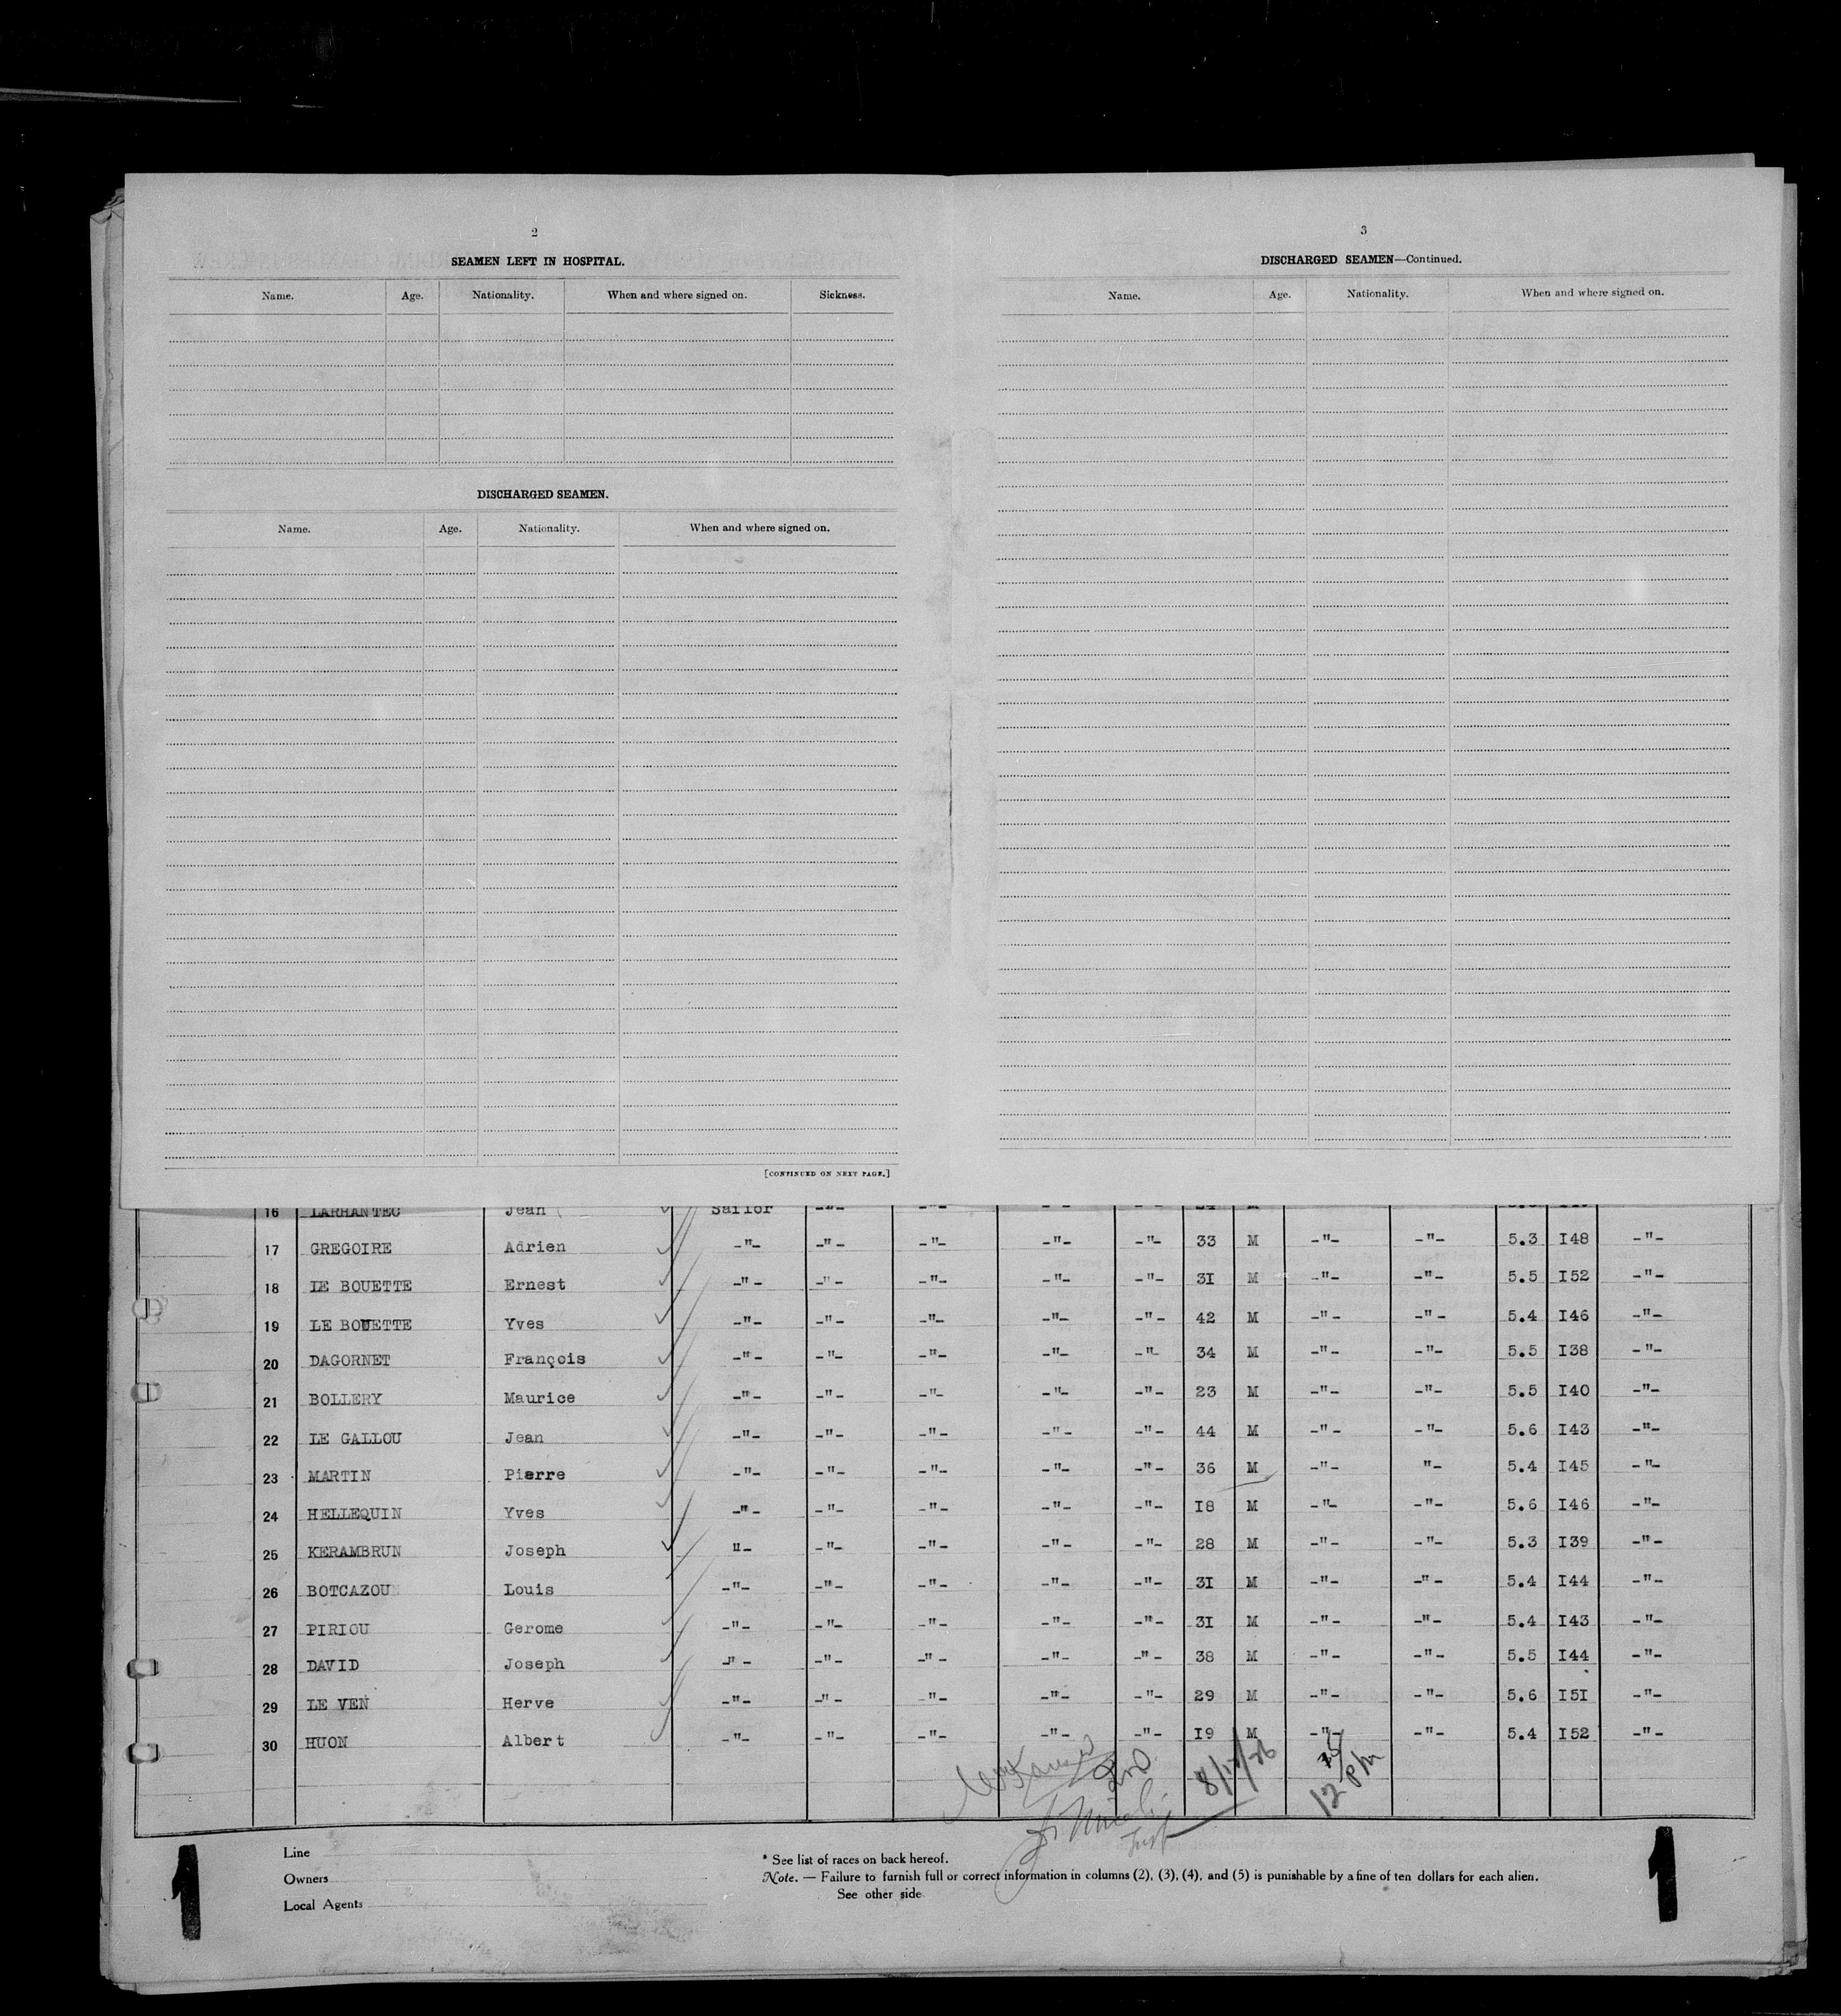 2
SEAMEN LEFT IN HOSPITAL.
Name. Age. Nationality. When and where signed on. Sickness.
DISCHARGED SEAMEN.
Name. Age. Nationality. When and where signed on.
[CONTINUED ON NEXT PAGE.]
3
DISCHARGED SEAMEN—Continued.
Name. Age. Nationality. When and where signed on.
16 LARHANTEC Jean Sailor -"- -"- -"- -"- M
17 GREGOIRE Adrien -"- -"- -"- -"- -"- 33 M -"- -"- 5.3 I48 -"-
18 LE BOUETTE Ernest -"- -"- -"- -"- -"- 3I M -"- -"- 5.5 I52 -"-
19 LE BOUETTE Yves -"- -"- -"- -"- -"- 42 M -"- -"- 5.4 I46 -"-
20 DAGORNET François -"- -"- -"- -"- -"- 34 M -"- -"- 5.5 I38 -"-
21 BOLLERY Maurice -"- -"- -"- -"- -"- 23 M -"- -"- 5.5 I40 -"-
22 LE GALLOU Jean -"- -"- -"- -"- -"- 44 M -"- -"- 5.6 I43 -"-
23 MARTIN Pierre -"- -"- -"- -"- -"- 36 M -"- "- 5.4 I45 -"-
24 HELLEQUIN Yves -"- -"- -"- -"- -"- I8 M -"- -"- 5.6 I46 -"-
25 KERAMBRUN Joseph "- -"- -"- -"- -"- 28 M -"- -"- 5.3 I39 -"-
26 BOTCAZOU Louis -"- -"- -"- -"- -"- 3I M -"- -"- 5.4 I44 -"-
27 PIRIOU Gerome -"- -"- -"- -"- -"- 3I M -"- -"- 5.4 I43 -"-
28 DAVID Joseph -"- -"- -"- -"- -"- 38 M -"- -"- 5.5 I44 -"-
29 LE VEN Herve -"- -"- -"- -"- -"- 29 M -"- -"- 5.6 I5I -"-
30 HUON Albert -"- -"- -"- -"- -"- I9 M -"- -"- 5.4 I52 -"-
12 PM
Line
Owners
Local Agents
* See list of races on back hereof.
Note. — Failure to furnish full or correct information in columns (2), (3), (4), and (5) is punishable by a fine of ten dollars for each alien.
See other side
1 1